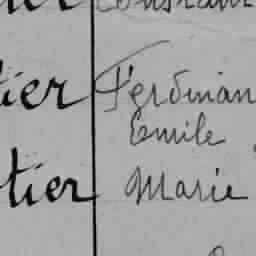 tier Ferdinan
Emile
tier Marie